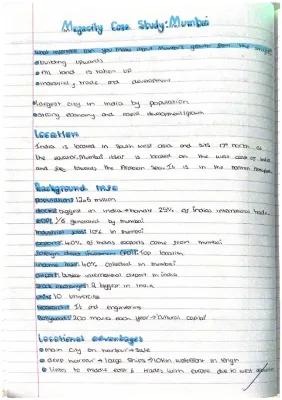 Megacity Case Study: Mumbai
What inferences can you make about Mumbai's growth from the image
• building upwards
• All land is taken up
• industrial, trade and development
• largest city in India by population
• strong economy and rapid development/growth
Location
India is located in South west asia and sits 19° north of
the equator. Mumbai is located on the west coast of India
and the Arabian Sea. It is in the northern hemisphere
Background info
population: 12.5 million
docks: biggest in india → handle 25% of India's international trade
GDP: 1/6 generated by mumbai
industrial jobs: 10% in mumbai
exports: 40% of India's exports come from mumbai
foreign direct investment (FDI): top location
income tax: 40% collected in mumbai
airport: busiest international airport in india
stock exchanges: 2 biggest in india
unis: 10 universities
research: IT and engineering
Bollywood: 200 movies each year → cultural capital
Locational advantages
• main city on harbour → safe
• deep harbour → large ships → 10km waterfront in length
• links to middle east & trades with europe due to west